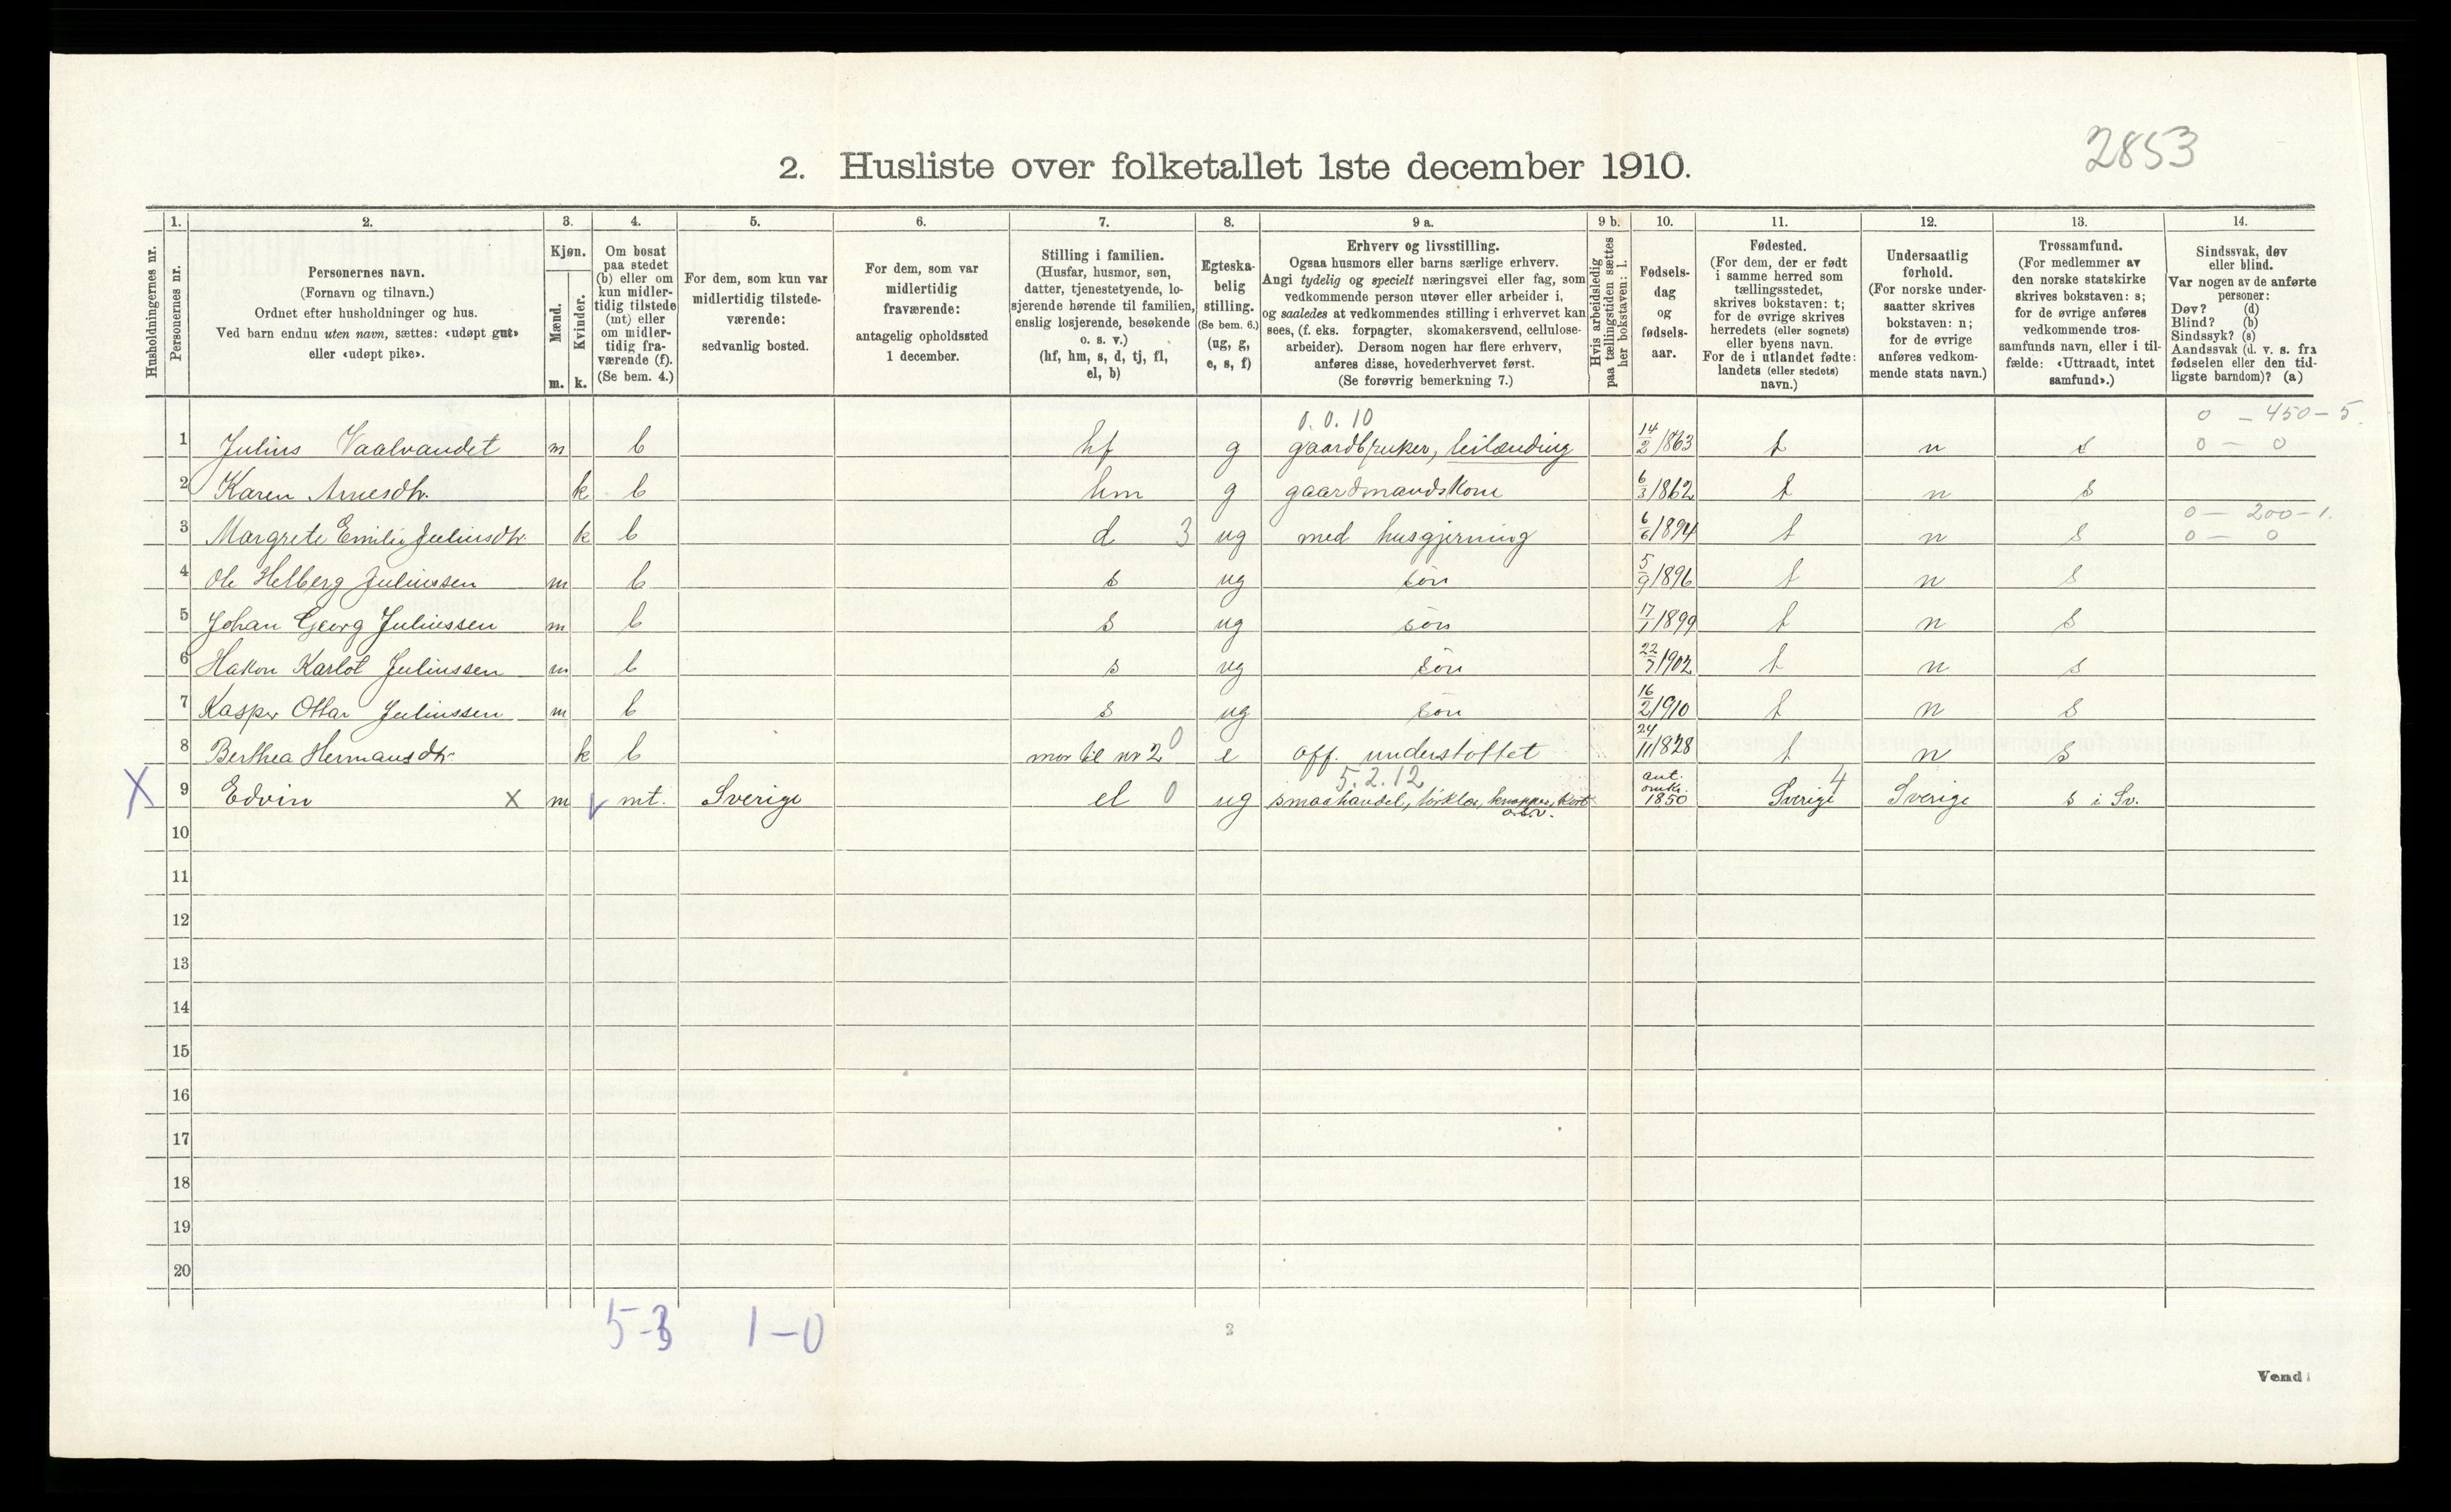 2853
2. Husliste over folketallet 1ste december 1910.
Husholdningernes nr.
1.
Personernes nr.
2.
Personernes navn.
(Fornavn og tilnavn.)
Ordnet efter husholdninger og hus.
Ved barn endnu uten navn, sættes: «udøpt gut»
eller «udøpt pike».
3.
Kjøn.
Mænd.
Kvinder.
m. k.
4.
Om bosat
paa stedet
(b) eller om
kun midler-
tidig tilstede
(mt) eller
om midler-
tidig fra-
værende (f).
(Se bem. 4.)
5.
For dem, som kun var
midlertidig tilstede-
værende:
sedvanlig bosted.
6.
For dem, som var
midlertidig
fraværende:
antagelig opholdssted
1 december.
7.
Stilling i familien.
(Husfar, husmor, søn,
datter, tjenestetyende, lo-
sjerende hørende til familien,
enslig losjerende, besøkende
o. s. v.)
(hf, hm, s, d, tj, fl,
el, b)
8.
Egteska-
belig
stilling.
(Se bem. 6.)
(ug, g,
e, s, f)
9 a.
Erhverv og livsstilling.
Ogsaa husmors eller barns særlige erhverv.
Angi tydelig og specielt næringsvei eller fag, som
vedkommende person utøver eller arbeider i,
og saaledes at vedkommendes stilling i erhvervet kan
sees, (f. eks. forpagter, skomakersvend, cellulose-
arbeider). Dersom nogen har flere erhverv,
anføres disse, hovederhvervet først.
(Se forøvrig bemerkning 7.)
9 b.
Hvis arbeidsledig
paa tællingstiden sættes
her bokstaven: l.
10.
Fødsels-
dag
og
fødsels-
aar.
11.
Fødested.
(For dem, der er født
i samme herred som
tællingsstedet,
skrives bokstaven: t;
for de øvrige skrives
herredets (eller sognets)
eller byens navn.
For de i utlandet fødte:
landets (eller stedets)
navn.)
12.
Undersaatlig
forhold.
(For norske under-
saatter skrives
bokstaven: n;
for de øvrige
anføres vedkom-
mende stats navn.)
13.
Trossamfund.
(For medlemmer av
den norske statskirke
skrives bokstaven: s;
for de øvrige anføres
vedkommende tros-
samfunds navn, eller i til-
fælde: «Uttraadt, intet
samfund».)
14.
Sindssvak, døv
eller blind.
Var nogen av de anførte
personer:
Døv? (d)
Blind? (b)
Sindssyk? (s)
Aandssvak (d. v. s. fra
fødselen eller den tid-
ligste barndom)? (a)
0.0.10 0 - 450 - 5.
1 Julius Vaalvandet m b hf g gaardbruker, leilænding 14/2 1863 t n s 0 - 0
2 Karen Arnesdtr. k b hm g gaardmandskone 6/3 1862 t n s
0 - 200 - 1.
3 Margrete Emilie Juliusdtr. k b d 3 ug med husgjerning 6/6 1894 t n s 0 - 0
4 Ole Helberg Juliussen m b s ug søn 5/9 1896 t n s
5 Johan Georg Juliussen m b s ug søn 17/1 1899 t n s
6 Hakon Karlot Juliussen m b s ug søn 22/7 1902 t n s
7 Kasper Ottar Juliussen m b s ug søn 16/2 1910 t n s
8 Berthea Hermansdtr. k b mor til nr 2 0 e off. understøttet 24/11 1828 t n s
5.2.12 ant. omkr. 4
X 9 Edvin x m mt. Sverige el 0 ug smaahandel, tørklær, knapper, kort 1850 Sverige Sverige s i Sv.
o.s.v.
10
11
12
13
14
15
16
17
18
19
20
5-3 1-0
2
Vend!